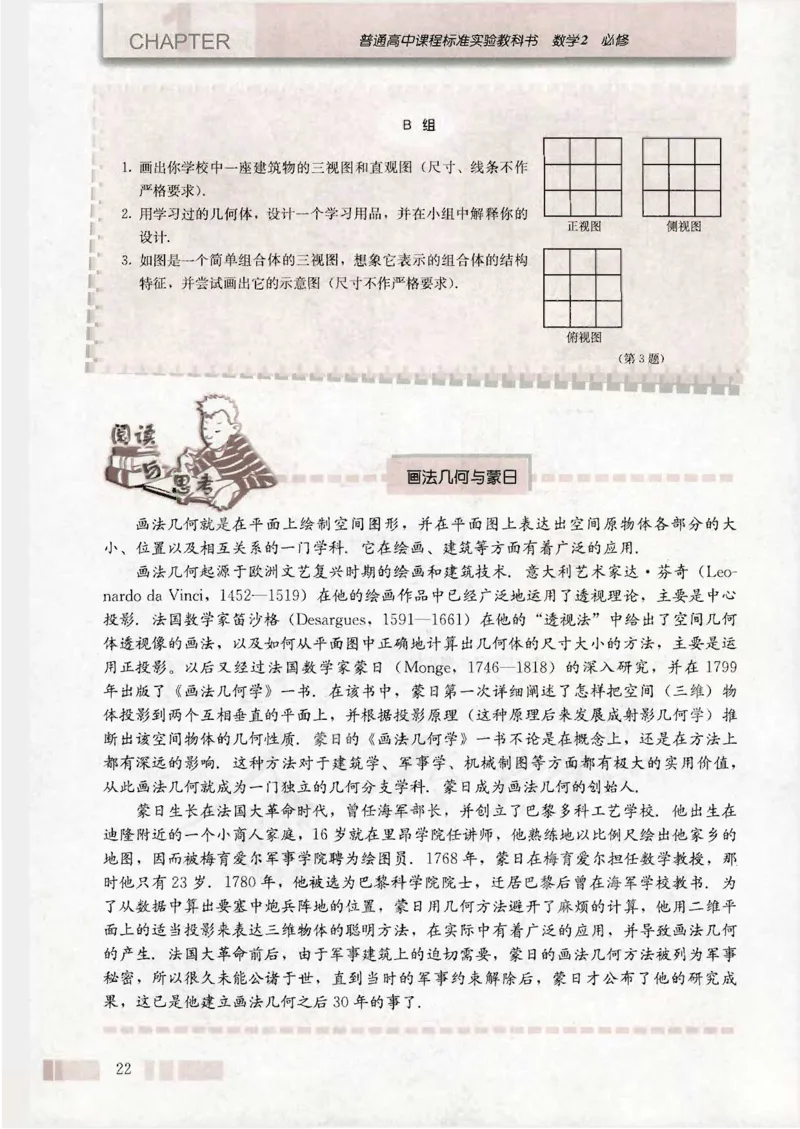 CHAPTER 1
普通高中课程标准实验教科书 数学2 必修
B 组
1. 画出你学校中一座建筑物的三视图和直观图（尺寸、线条不作
严格要求）.
2. 用学习过的几何体，设计一个学习用品，并在小组中解释你的
设计.
3. 如图是一个简单组合体的三视图，想象它表示的组合体的结构
特征，并尝试画出它的示意图（尺寸不作严格要求）.
正视图
侧视图
俯视图
（第 3 题）
阅读
与
思考
画法几何与蒙日
画法几何就是在平面上绘制空间图形，并在平面图上表达出空间原物体各部分的大
小、位置以及相互关系的一门学科. 它在绘画、建筑等方面有着广泛的应用.
画法几何起源于欧洲文艺复兴时期的绘画和建筑技术. 意大利艺术家达·芬奇（Leo-
nardo da Vinci，1452—1519）在他的绘画作品中已经广泛地运用了透视理论，主要是中心
投影. 法国数学家笛沙格（Desargues，1591—1661）在他的“透视法”中给出了空间几何
体透视像的画法，以及如何从平面图中正确地计算出几何体的尺寸大小的方法，主要是运
用正投影。以后又经过法国数学家蒙日（Monge，1746—1818）的深入研究，并在 1799
年出版了《画法几何学》一书. 在该书中，蒙日第一次详细阐述了怎样把空间（三维）物
体投影到两个互相垂直的平面上，并根据投影原理（这种原理后来发展成射影几何学）推
断出该空间物体的几何性质. 蒙日的《画法几何学》一书不论是在概念上，还是在方法上
都有深远的影响. 这种方法对于建筑学、军事学、机械制图等方面都有极大的实用价值，
从此画法几何就成为一门独立的几何分支学科. 蒙日成为画法几何的创始人.
蒙日生长在法国大革命时代，曾任海军部长，并创立了巴黎多科工艺学校. 他出生在
迪隆附近的一个小商人家庭，16 岁就在里昂学院任讲师，他熟练地以比例尺绘出他家乡的
地图，因而被梅育爱尔军事学院聘为绘图员. 1768 年，蒙日在梅育爱尔担任数学教授，那
时他只有 23 岁. 1780 年，他被选为巴黎科学院院士，迁居巴黎后曾在海军学校教书. 为
了从数据中算出要塞中炮兵阵地的位置，蒙日用几何方法避开了麻烦的计算，他用二维平
面上的适当投影来表达三维物体的聪明方法，在实际中有着广泛的应用，并导致画法几何
的产生. 法国大革命前后，由于军事建筑上的迫切需要，蒙日的画法几何方法被列为军事
秘密，所以很久未能公诸于世，直到当时的军事约束解除后，蒙日才公布了他的研究成
果，这已是他建立画法几何之后 30 年的事了.
22